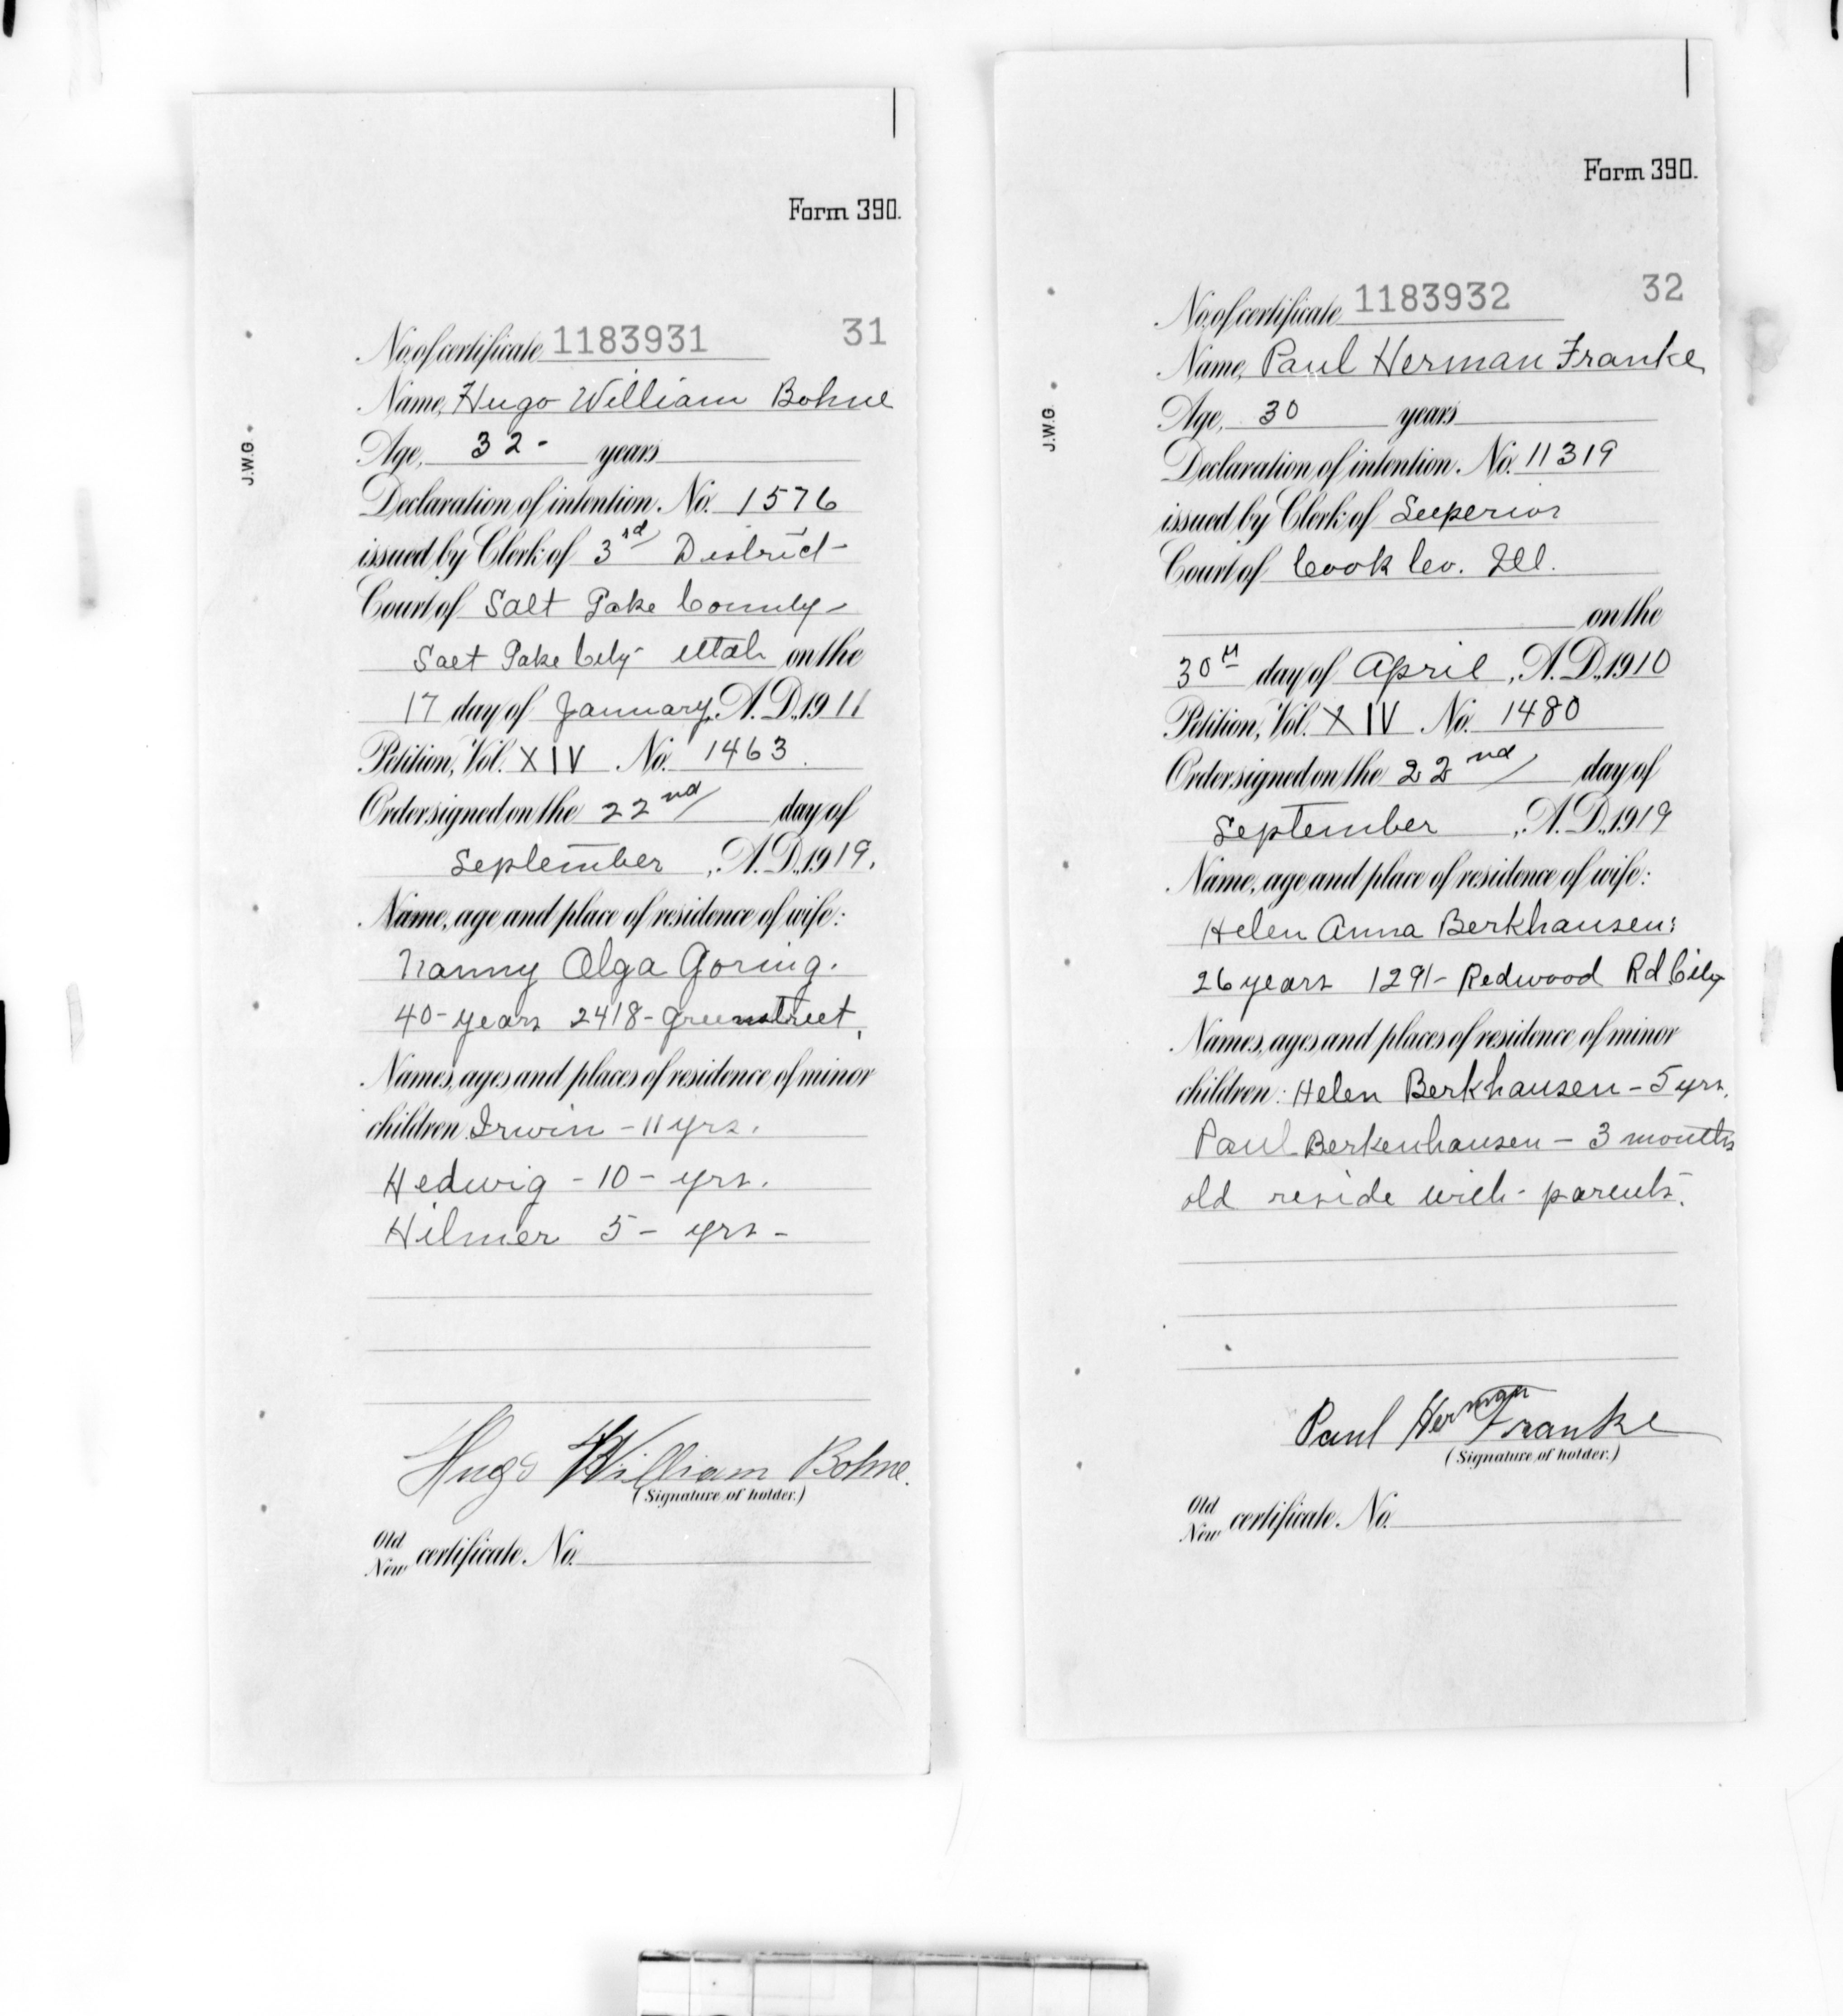 Form 390.
31
No. of certificate 1183931
Name, Hugo William Bohne
J.W.G.
Age, 32- years
Declaration of intention. No. 1576
issued by Clerk of 3rd District-
Court of Salt Lake County-
Salt Lake City- Utah on the
17 day of January, A. D., 1911
Petition, Vol. XIV No. 1463.
Order signed on the 22nd day of
September, A. D., 1919.
Name, age and place of residence of wife:
Nanny Olga Goring.
40-years 2418-Greenstreet.
Names, ages and places of residence of minor
children Irwin - 11 yrs.
Hedwig - 10 - yrs.
Hilmer 5 - yrs -
Hugo William Bohne.
(Signature of holder.)
Old
New certificate. No.
Form 390.
32
No. of certificate 1183932
Name, Paul Herman Franke
J.W.G.
Age, 30 years
Declaration of intention. No. 11319
issued by Clerk of Superior
Court of Cook Co. Ill.
on the
30th day of April, A. D., 1910
Petition, Vol. XIV No. 1480
Order signed on the 22nd day of
September, A. D., 1919
Name, age and place of residence of wife:
Helen Anna Berkhausen;
26 years 1291- Redwood Rd City
Names, ages and places of residence of minor
children: Helen Berkhausen - 5 yrs.
Paul Berkenhausen - 3 months
old reside with- parents.
Paul Herman Franke
(Signature of holder.)
Old
New certificate. No.